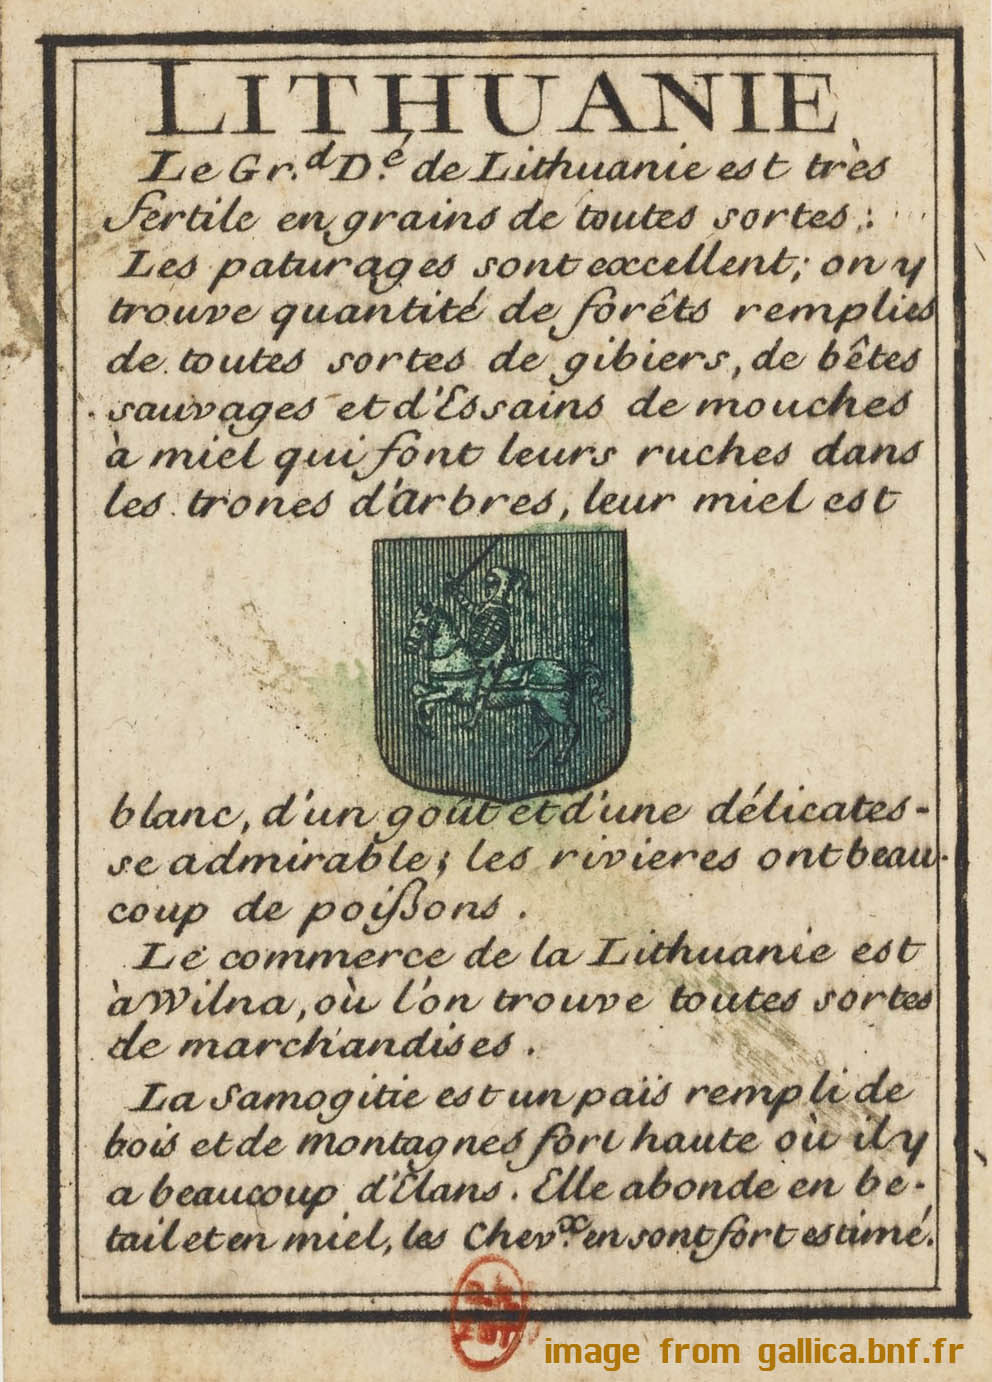 LITHUANIE
Le Gr.d D.é de Lithuanie est très
fertile en grains de toutes sortes;
Les paturages sont excellent; on y
trouve quantité de forêts remplies
de toutes sortes de gibiers, de bêtes
sauvages et d'Essains de mouches
à miel qui font leurs ruches dans
les trones d'arbres, leur miel est
blanc, d'un goût et d'une délicates-
se admirable; les rivieres ont beau-
coup de poißons.
Le commerce de la Lithuanie est
à Wilna, où l'on trouve toutes sortes
de marchandises.
La Samogitie est un païs rempli de
bois et de montagnes fort haute où il y
a beaucoup d'Elans. Elle abonde en be-
tail et en miel, les Chev.x en sont fort estimé.
image from gallica.bnf.fr